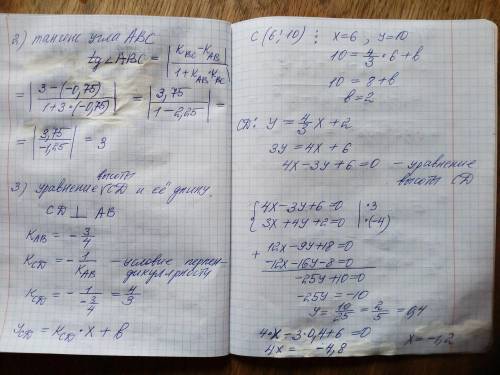 2) тангенс угла ABC
tg∠ABC = |(K_BC - K_AB)/(1 + K_AB·K_BC)|
= |(3-(-0,75))/(1+3·(-0,75))| = |3,75/(1-2,25)| =
= |3,75/-1,25| = 3
высоты
3) уравнение CD и её длину.
CD ⊥ AB
K_AB = -3/4
K_CD = -1/K_AB - условие перпен-
дикулярности
K_CD = -1/(-3/4) = 4/3
y_CD = K_CD·x + b
C (6; 10) : x=6, y=10
10 = 4/3 · 6 + b
10 = 8 + b
b = 2
CD: y = 4/3 x + 2
3y = 4x + 6
4x - 3y + 6 = 0 - уравнение
высоты CD
{4x - 3y + 6 = 0 | ·3
3x + 4y + 2 = 0 | ·(-4)
+ 12x - 9y + 18 = 0
-12x - 16y - 8 = 0
-25y + 10 = 0
-25y = -10
y = 10/25 = 2/5 = 0,4
4·x - 3·0,4 + 6 = 0
4x = -4,8 x = -1,2